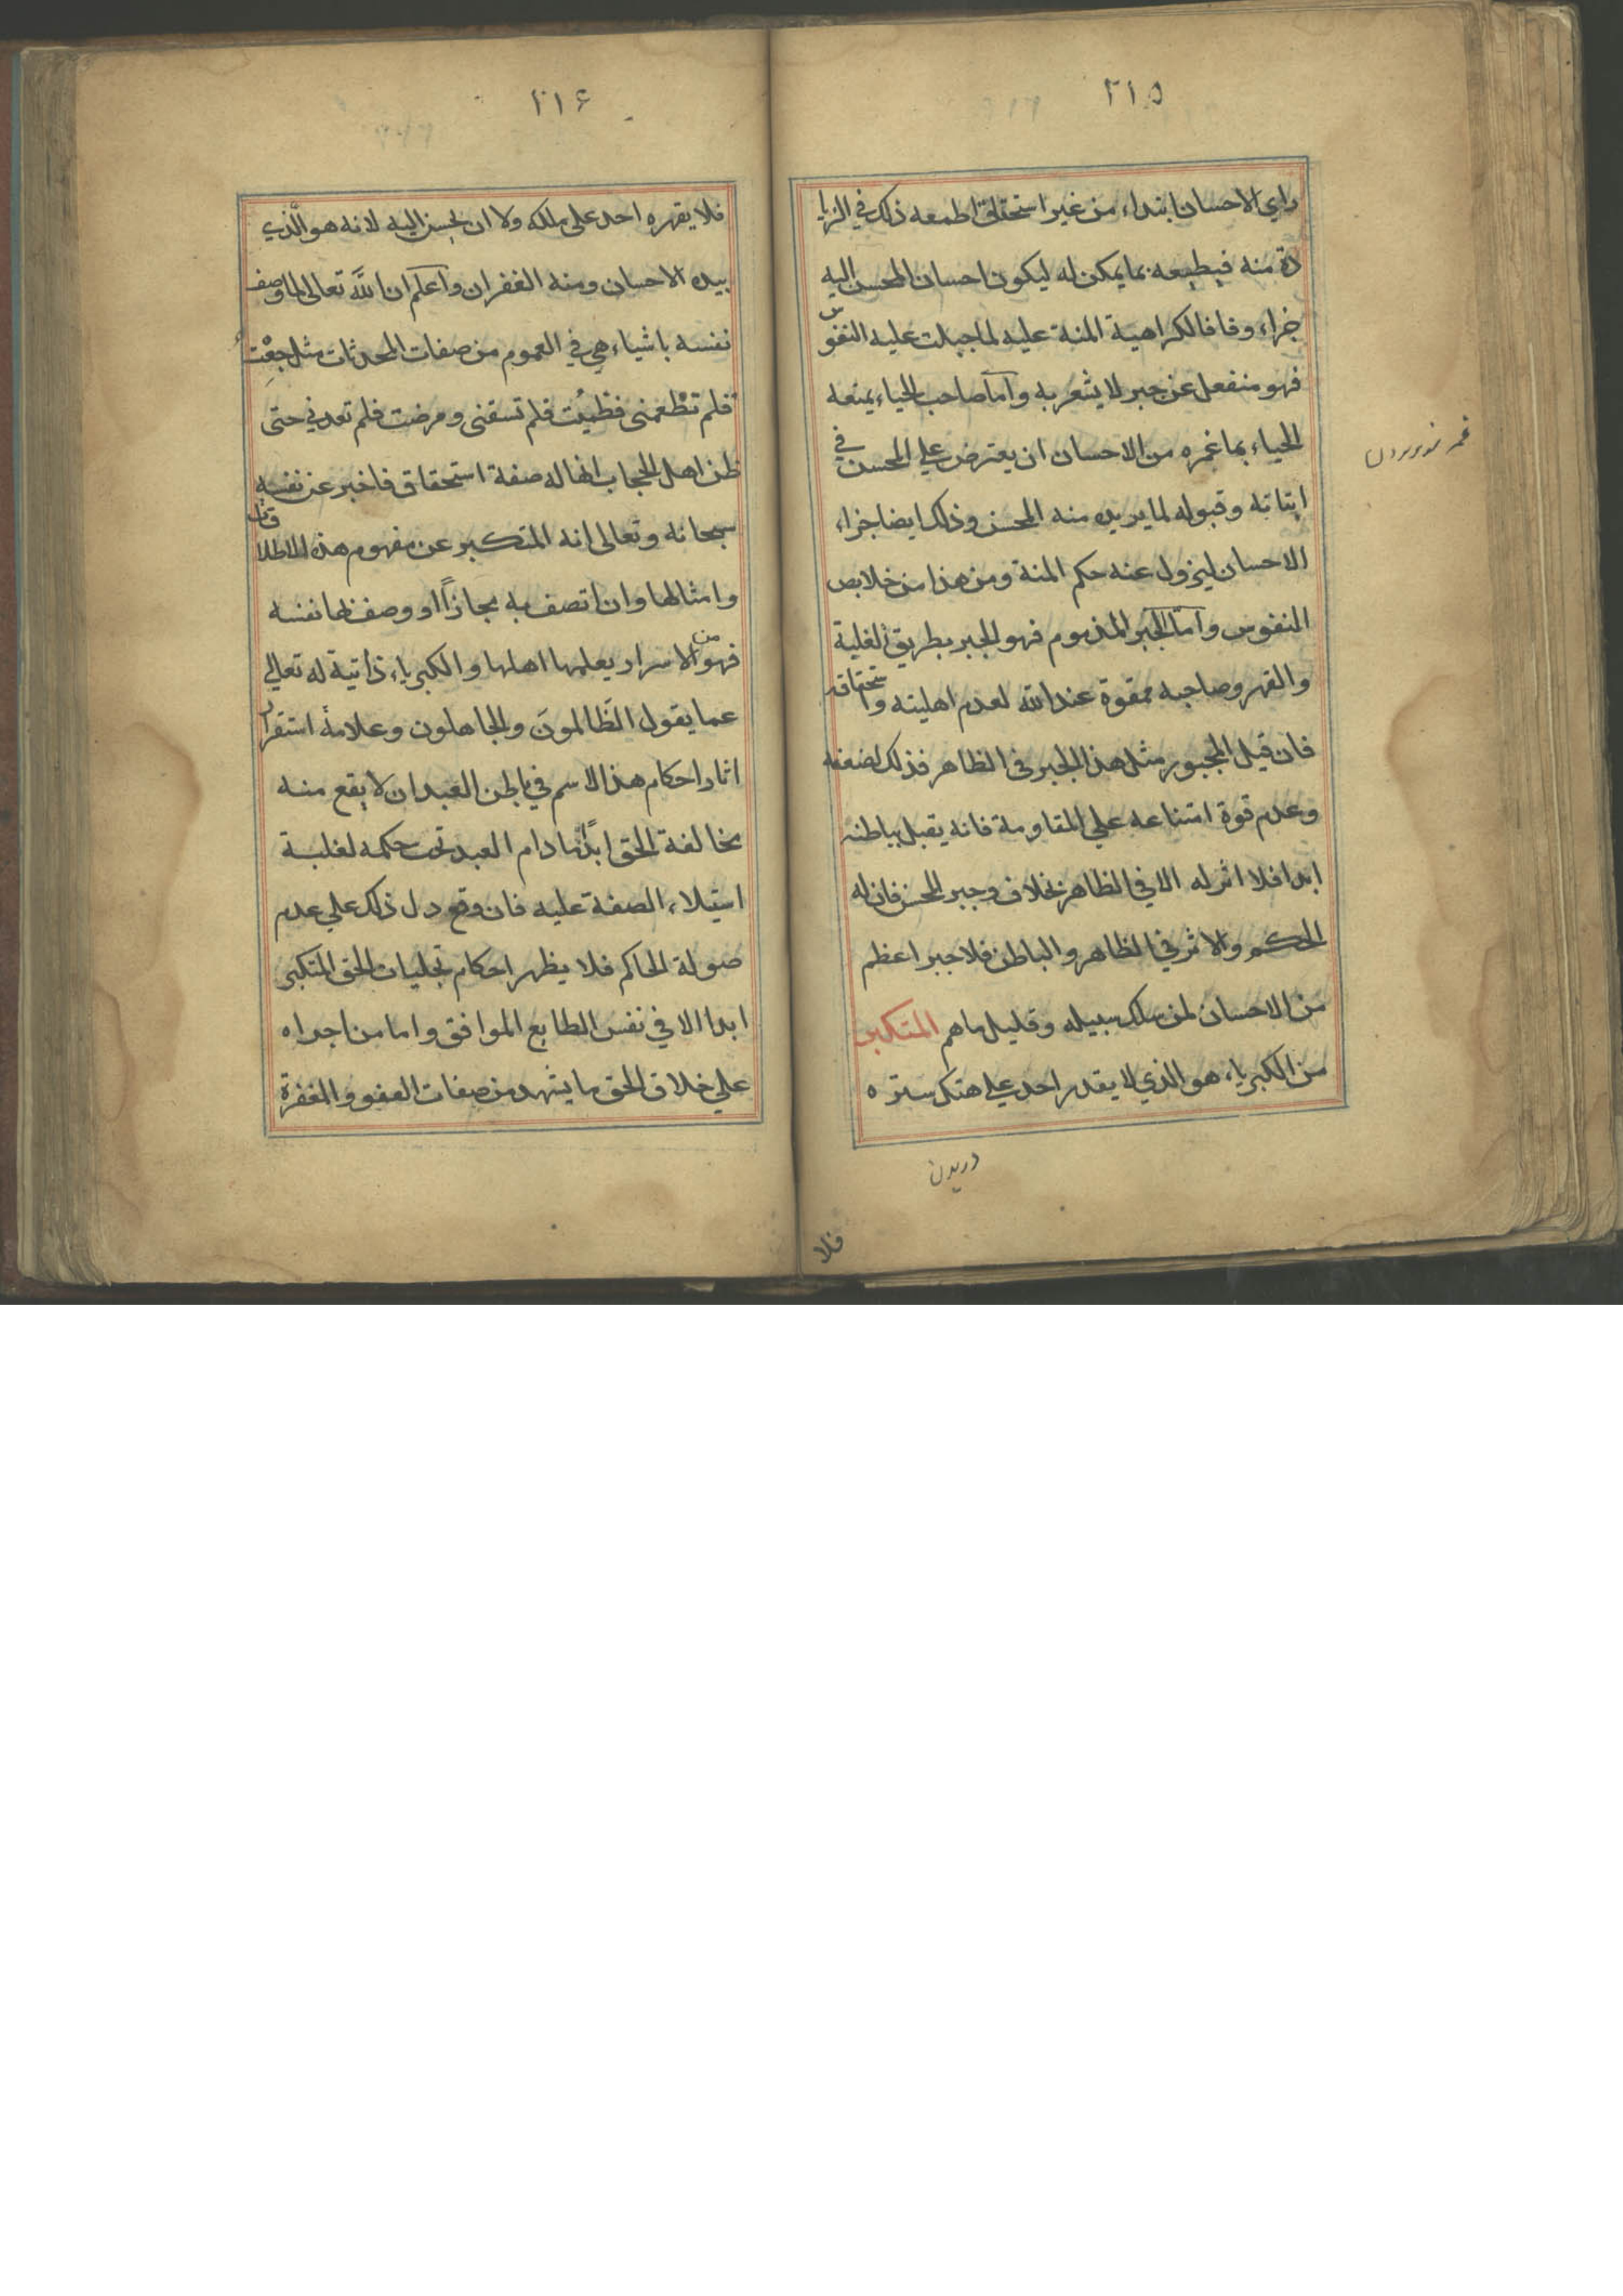 ٢١٥
راى الاحسان ابتداء من غير استحقاق اطمعه ذلك في الزيا
دة منه فيطيعه بما يمكن له ليكون احسان المحسن اليه
جزاء وفاقا لكراهية المنة عليه لما جبلت عليه النفوس
فهو منفعل عن جبر لا يشعر به واما صاحب الحياء يمنعه
الحياء بما غمره من الاحسان ان يعترض علي المحسن في
وقبوله لما يريده منه المحسن وذلك ايضا جزاء
الاحسان ليزول عنه حكم المنة ومن هذا من خلايص
النفوس واما الجبر المذموم فهو الجبر بطريق الغلبة
والقهر وصاحبه ممقوة عند الله لعدم اهليته واستحقاقه
فان قيل المجبور مثل هذا الجبر في الظاهر فذلك لضعفه
وعدم قوة امتناعه علي المقاومة فانه يقبل بباطنه
ابدا فلا اثر له الا في الظاهر بخلاف وجبر المحسن فان له
الحكم والاثر في الظاهر والباطن فلا جبر اعظم
من الاحسان لمن سلك سبيله وقليل ما هم المتكبر
من الكبرياء هو الذي لا يقدر احد علي هتك ستره
دريدن
فلا
٢١۶
فلا يقهره احد على ملكه ولا ان يحسن اليه لانه هو الَّذي
بيده الاحسان ومنه الغفران واعلم ان اللَّه تعالى لما وصف
نفسه باشياء هي في العموم من صفات المحدثات مثل جعْت
فلم تطْعمنى فظمِئت فلم تسقنى ومرضت فلم تعدني حتى
ظن اهل الحجاب انها له صفة استحقاق فاخبر عن نفسه
سبحانه وتعالى انه المتكبر عن مفهوم هذه الاطلاقات
وامثالها وان اتصف به مجازاً او وصف بها نفسه
فهو من الاسرار يعلمها اهلها والكبرياء ذاتية له تعالي
عما يقول الظَّالمونَ والجاهلون وعلامة استقرار
اثار احكام هذا الاسم في باطن العبد ان لا يقع منه
مخالفة الحق ابدًا ما دام العبد تحت حكمه لغلبة
استيلاء الصفة عليه فان وقع دل ذلك علي عدم
صولة الحاكم فلا يظهر احكام تجليات الحق المتكبر
ابدا الا في نفس الطايع الموافق واما من اجراه
علي خلاف الحق ما يشهد من صفات العفو والمغفرة